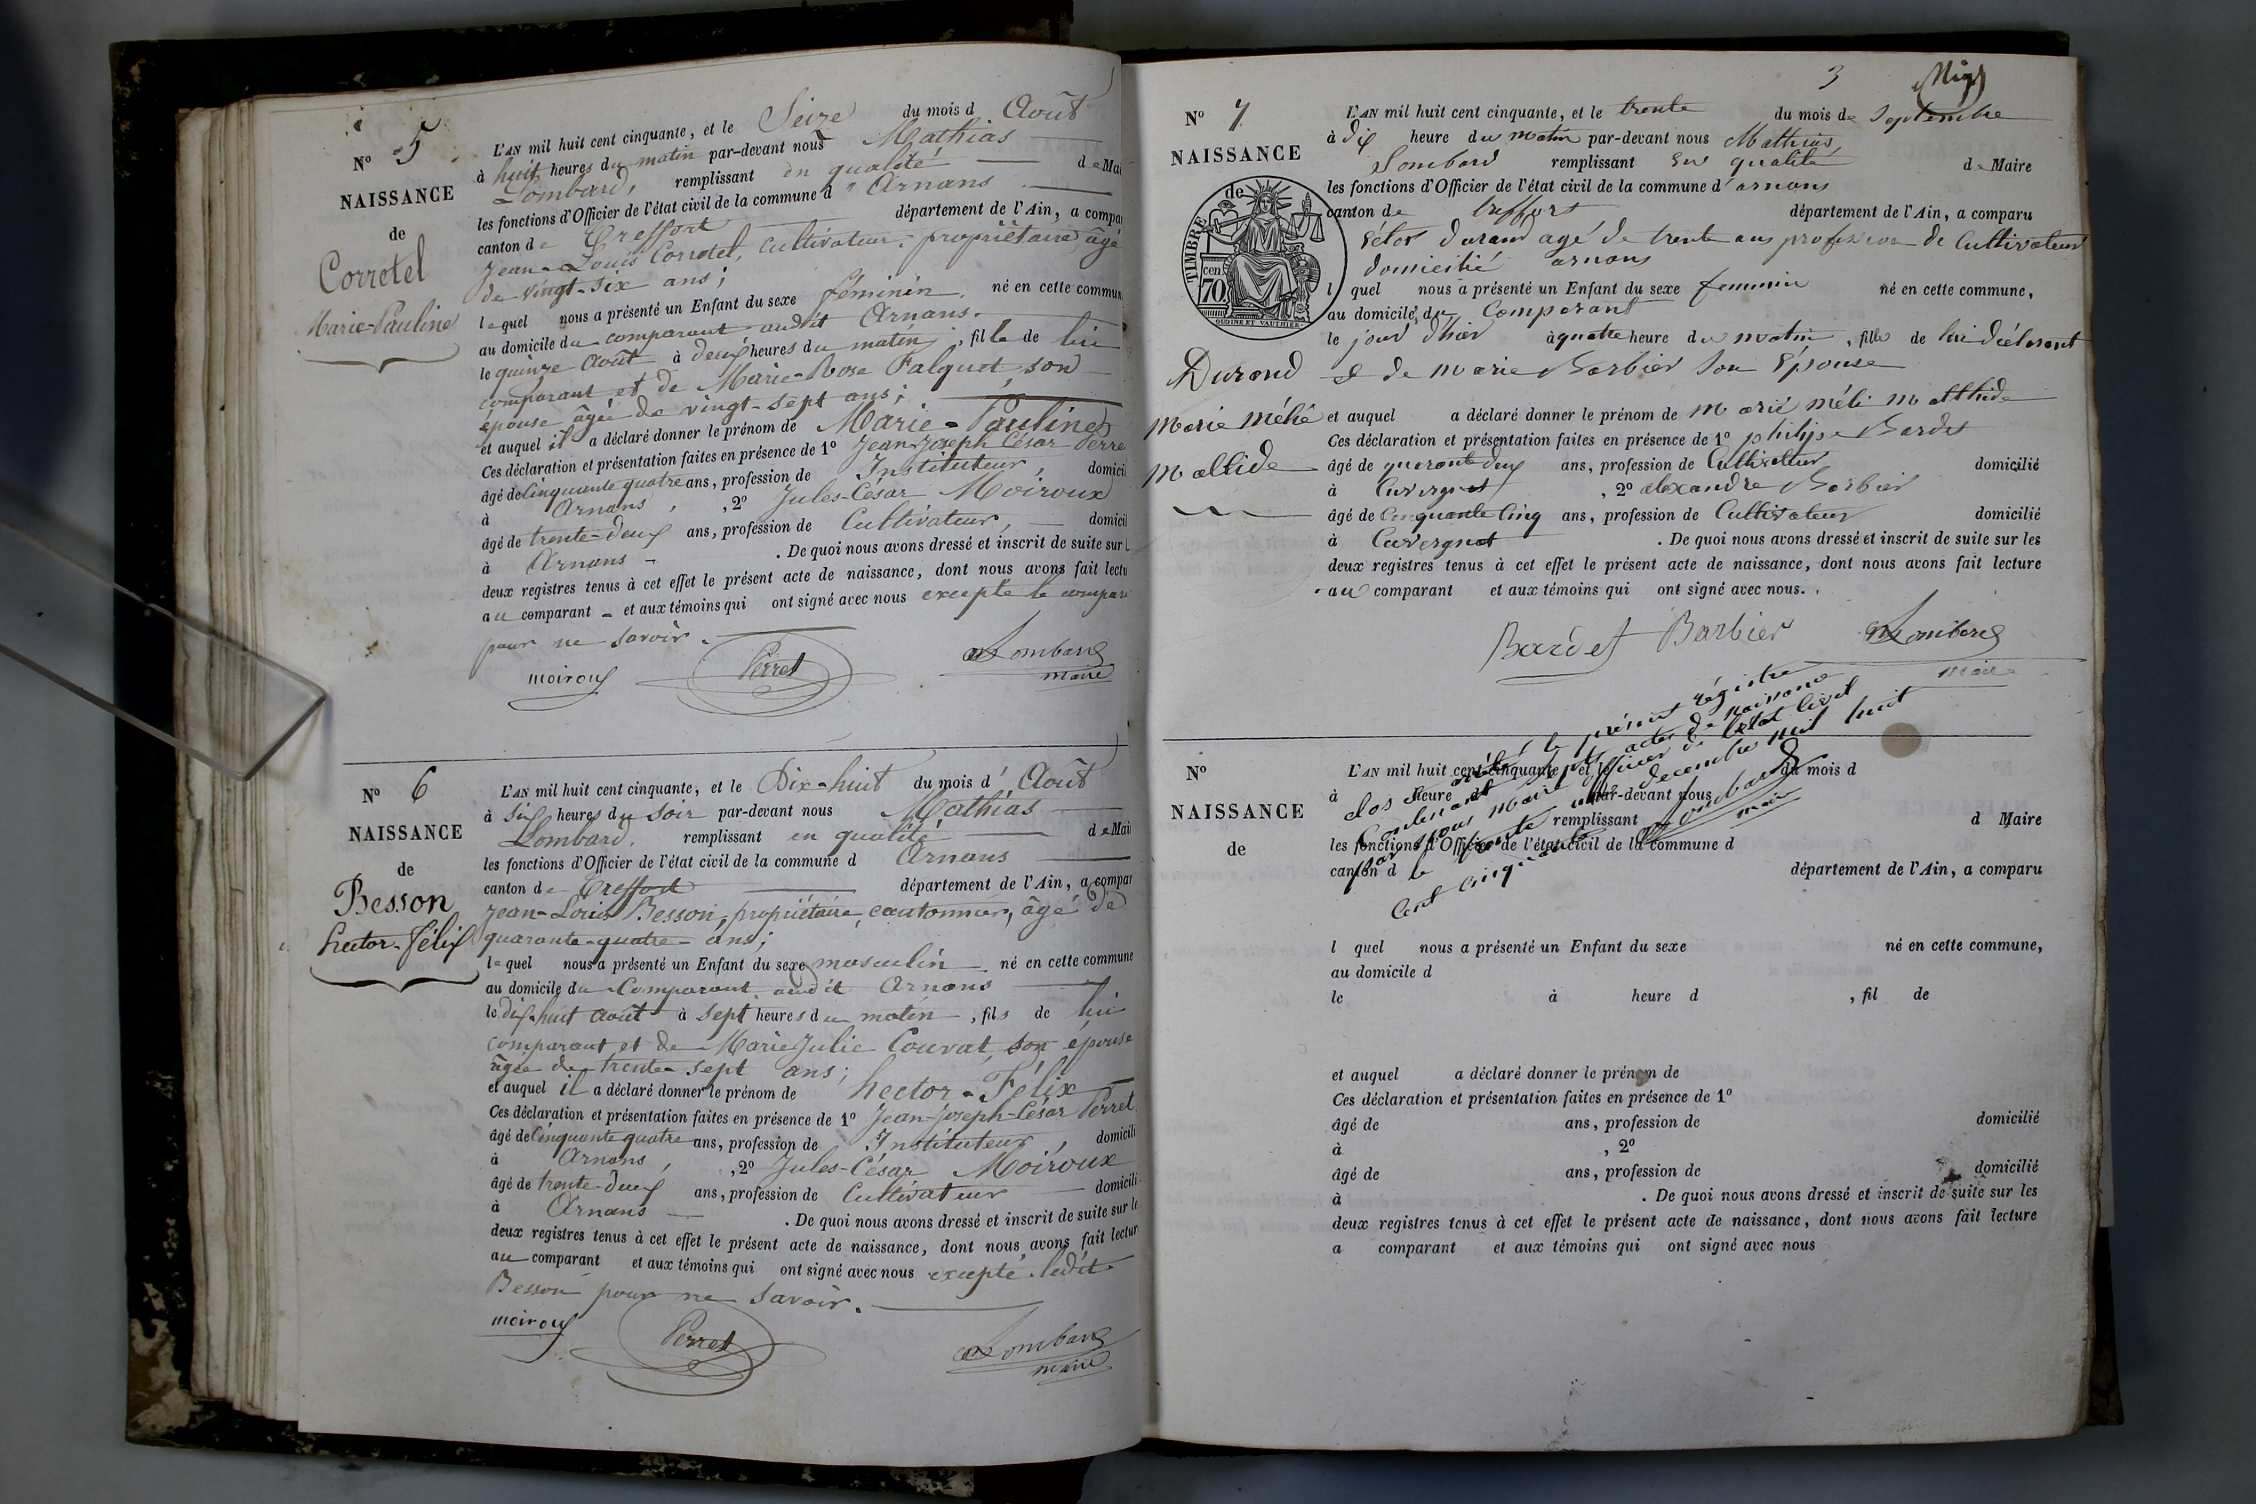 N° 5
NAISSANCE
de
Corrotel
Marie-Pauline
L'AN mil huit cent cinquante, et le Seize du mois d Août
à huit heures du matin par-devant nous Mathias
Lombard, remplissant en qualité de Mai
les fonctions d'Officier de l'état civil de la commune d'Arnans
canton de Treffort département de l'Ain, a compa
Jean-Louis Corrotel, cultivateur, propriétaire, âgé
de vingt-six ans;
lequel nous a présenté un Enfant du sexe féminin, né en cette commun
au domicile du comparant audit Arnans.
le quinze Août à deux heures du matin, fille de lui
comparant et de Marie-Rose Falquet, son
épouse âgée de vingt-sept ans;
et auquel il a déclaré donner le prénom de Marie-Pauline
Ces déclaration et présentation faites en présence de 1° Jean-Joseph César Perre
âgé de Cinquante quatre ans, profession de Instituteur, domicil
à Arnans, , 2° Jules-César Moiroux
âgé de trente-deux ans, profession de Cultivateur, domicil
à Arnans . De quoi nous avons dressé et inscrit de suite sur l
deux registres tenus à cet effet le présent acte de naissance, dont nous avons fait lectu
au comparant et aux témoins qui ont signé avec nous excepté le compara
pour ne savoir.
moiroux Perret Lombard
maire
N° 6
NAISSANCE
de
Besson
hector-Félix
L'AN mil huit cent cinquante, et le Dix-huit du mois d'Août
à six heures du soir par-devant nous Mathias
Lombard, remplissant en qualité de Mai
les fonctions d'Officier de l'état civil de la commune d Arnans
canton de Treffort département de l'Ain, a compar
Jean-Louis Besson, propriétaire, cantonnier, âgé de
quarante-quatre ans;
lequel nous a présenté un Enfant du sexe masculin né en cette commune
au domicile du Comparant audit Arnans
le dix-huit août à sept heures du matin, fils de lui
comparant et de Marie Julie Couvat, son épouse
âgée de trente-sept ans;
et auquel il a déclaré donner le prénom de hector-Félix
Ces déclaration et présentation faites en présence de 1° Jean-Joseph-César Perret
âgé de Cinquante quatre ans, profession de Instituteur, domicili
à Arnans, , 2° Jules-César Moiroux
âgé de trente-deux ans, profession de Cultivateur domicili
à Arnans . De quoi nous avons dressé et inscrit de suite sur le
deux registres tenus à cet effet le présent acte de naissance, dont nous avons fait lectur
au comparant et aux témoins qui ont signé avec nous excepté ledit
Besson pour ne savoir.
moiroux Perret Lombard
maire
3
N° 7
NAISSANCE
de
TIMBRE
70 cen
OUDINÉ ET VAUTHIER
Durand
Marie Mélie
Mattide
L'AN mil huit cent cinquante, et le trente du mois de Septembre
à dix heure du matin par-devant nous Mathias,
Lombard remplissant en qualité de Maire
les fonctions d'Officier de l'état civil de la commune d'arnans
canton de treffort département de l'Ain, a comparu
durand agé de trente ans profession de Cultivateur
domicilié arnans
l quel nous a présenté un Enfant du sexe feminin né en cette commune,
au domicile du Comparant
le jour d'hier à quatre heure du matin, fille de lui déclarant
& de marie Barbier Son épouse
et auquel a déclaré donner le prénom de Marie méli Matthide
Ces déclaration et présentation faites en présence de 1° philipe Bardet
âgé de quarante deux ans, profession de Cultivateur domicilié
à , 2° alexandre Barbier
âgé de Cinquante Cinq ans, profession de Cultivateur domicilié
à . De quoi nous avons dressé et inscrit de suite sur les
deux registres tenus à cet effet le présent acte de naissance, dont nous avons fait lecture
au comparant et aux témoins qui ont signé avec nous.
Bardet Barbier Lombard
maire
Clos & arrêté le présent régistre
Contenant sept actes de naissance
par nous maire officier de l'état civil
le trente un decembre mil huit
Cent cinquante Lombard
maire
N°
NAISSANCE
de
L'AN mil huit cent cinquante, et le du mois d
à heure d par-devant nous
remplissant d Maire
les fonctions d'Officier de l'état civil de la commune d
canton d département de l'Ain, a comparu
l quel nous a présenté un Enfant du sexe né en cette commune,
au domicile d
le à heure d , fil de
et auquel a déclaré donner le prénom de
Ces déclaration et présentation faites en présence de 1°
âgé de ans, profession de domicilié
à , 2°
âgé de ans, profession de domicilié
à . De quoi nous avons dressé et inscrit de suite sur les
deux registres tenus à cet effet le présent acte de naissance, dont nous avons fait lecture
a comparant et aux témoins qui ont signé avec nous